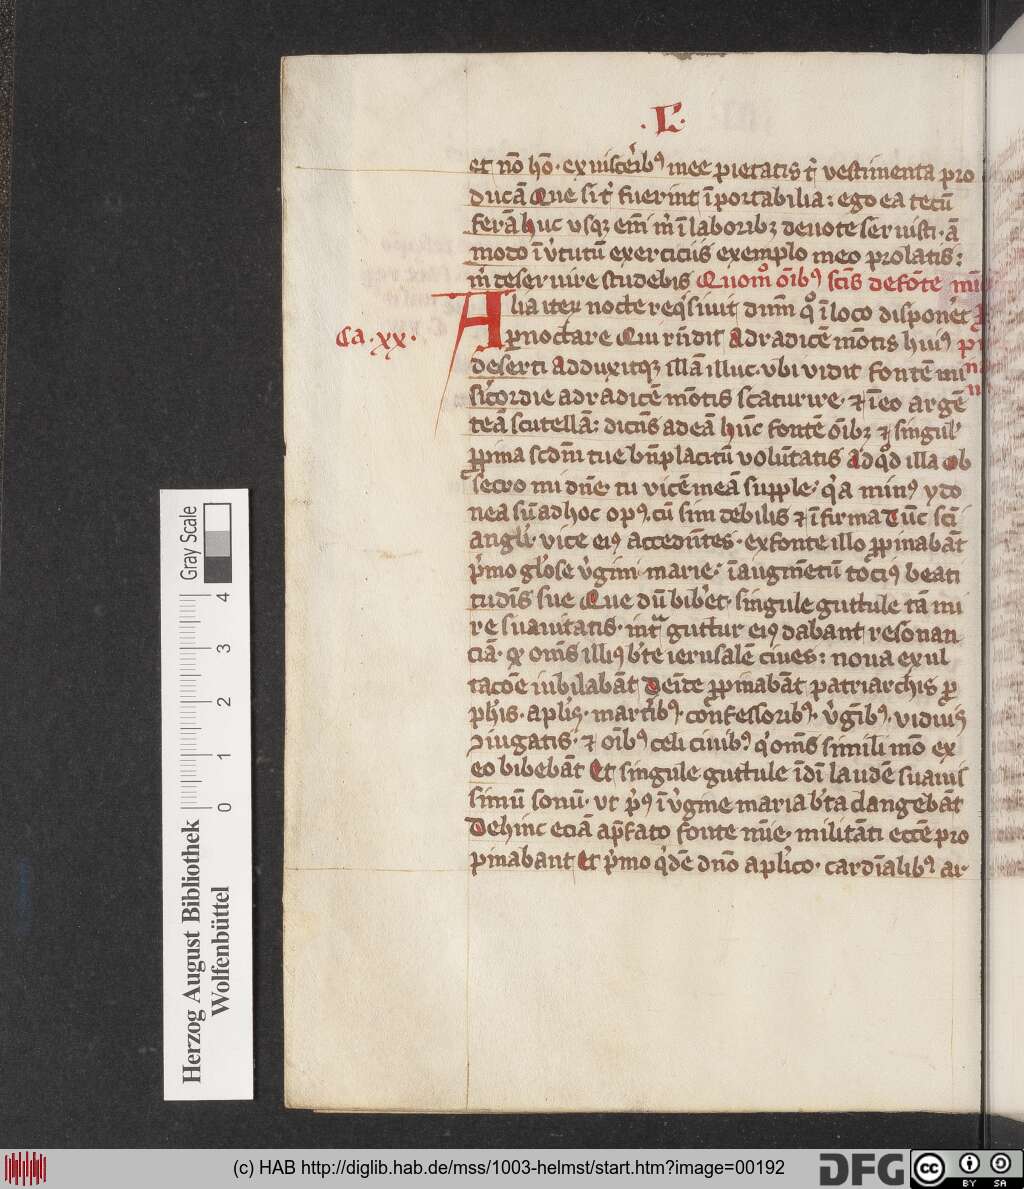 .L.
et nō hō· ex uiscerib⁹ mee pietatis t᷑ vestimenta pro
ducā Que si t᷑ fuerint īportabilia: ego ea tecū
ferā huc vsqꝫ em̄ m᷑ ī laboribꝫ deuote seruisti· ā
modo ī v᷑tutū exerciciis exemplo meo prolatis:
m᷑ deseruire studebis Quom̊ oīb⁹ scīs de fōte mīe
Alia iteꝝ nocte req̄siuit dnm̄ q̊ ī loco disponet᷑
Ca· xx·
ꝑnoctare Qui rn̄dit Ad radicē mōtis hui⁹
deserti Adduxitqꝫ illā illuc· vbi vidit fontē mi
sic̄ordie ad radicē mōtis scaturire· ⁊ ī eo argē
teā scutellā: dictūs ad eā hūc fontē oībꝫ ⁊ singul᷑
ꝓpina scdm̄ tue bn̄placitū volūtatis Ad q̊d illa ob
secro mi dn̄e· tu vicē meā supple· q᷑a min⁹ ydo
nea sū ad hoc op⁹· cū sim debilis ⁊ īfirma Tūc scī
angli· vice ei⁹ accedūtes· ex fonte illo ꝓpinabāt
p᷑mo gl᷑ose v᷑gini marie· ī augmētū toci⁹ beati
tudīs sue Que dū bib᷑et· singule guttule tā mi
re suauitatis· int᷑ guttur ei⁹ dabant resonan
ciā· ꝙ om̄s illi⁹ bt᷑e ierusalē ciues: noua exul
tacōe iubilabāt Deīte ꝓpinabāt patriarchis ꝓ
ph᷑is· apl᷑is· martirib⁹· confessorib⁹· v᷑gīb⁹· viduis
ꝯiugatis· ⁊ oīb⁹ celi ciuib⁹ q᷑ om̄s simili mō ex
eo bibebāt Et singule guttule īdi laudē suauis
simū sonū· vt p᷑⁹ ī v᷑gine maria bt᷑a clangebāt
Dehinc eciā a p̄fato fonte mīe· militāti eccē pro
pinabant Et p᷑mo q᷑dē dn̄o apl᷑ico· cardīalib⁹ ar·
Gray Scale
0 1 2 3 4
Herzog August Bibliothek
Wolfenbüttel
(c) HAB http://diglib.hab.de/mss/1003-helmst/start.htm?image=00192
DFG
cc
BY SA